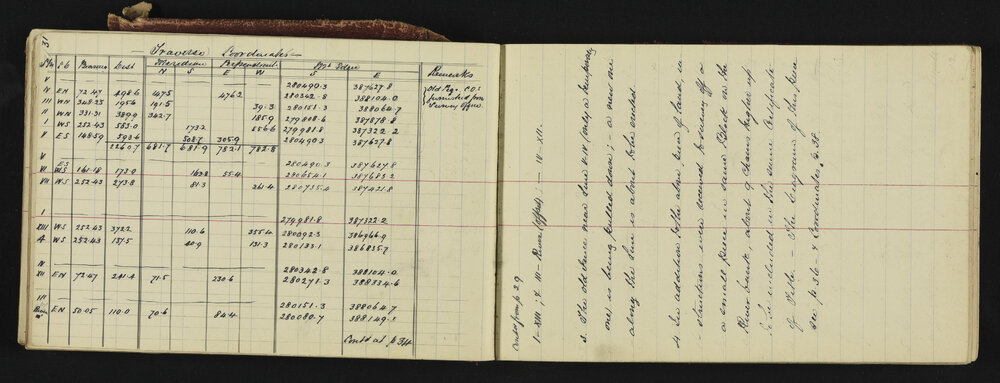 31
— Traverse Coordinates —
Stn | Qd | Bearing | Dist | Meridian N | S | Perpendicular E | W | S | E | Remarks
V | 280490.3 | 387627.8 | Old Reg. C.O.s
N | EN | 72.47 | 498.6 | 147.5 | 476.2 | 280342.8 | 388104.0 | furnished from
III | WN | 348.23 | 195.4 | 191.5 | 39.3 | 280151.3 | 388064.7 | Survey Office
II | WN | 331.31 | 389.9 | 342.7 | 185.9 | 279808.6 | 387878.8
I | WS | 252.43 | 583.0 | 173.2 | 556.6 | 279981.8 | 387322.2
V | ES | 148.59 | 593.6 | 508.7 | 305.9 | 280490.3 | 387627.8
2260.7 | 681.7 | 681.9 | 782.1 | 782.8
V | 280490.3 | 387627.8
VI | ES | 161.18 | 173.0 | 163.8 | 55.4 | 280654.1 | 387683.2
VII | WS | 252.43 | 273.8 | 81.3 | 261.4 | 280735.4 | 387421.8
I | 279981.8 | 387322.2
XIII | WS | 252.43 | 372.2 | 110.6 | 355.4 | 280092.3 | 386966.9
A | WS | 252.43 | 137.5 | 40.9 | 131.3 | 280133.1 | 386835.7
N | 280342.8 | 388104.0
XII | EN | 72.47 | 241.4 | 71.5 | 230.6 | 280271.3 | 388334.6
III | 280151.3 | 388064.7
EN | 50.05 | 110.0 | 70.6 | 84.4 | 280080.7 | 388149.2
Contd at p 34
Contd from p 29
I – XIII ; & III – River (Offset) ; — IV – XII.
3. The old fence near line V–IV (only a temporary
one) is being pulled down ; – a new one
along the line is about to be erected
4. In addition to the above area of land in-
-structions were issued to survey off a
a small piece in same Block on the
River bank, about 9 chains higher up
to be included in the same Certificate
of Title – See Diagram of this piece
see p. 36 – & Coordinates p. 38